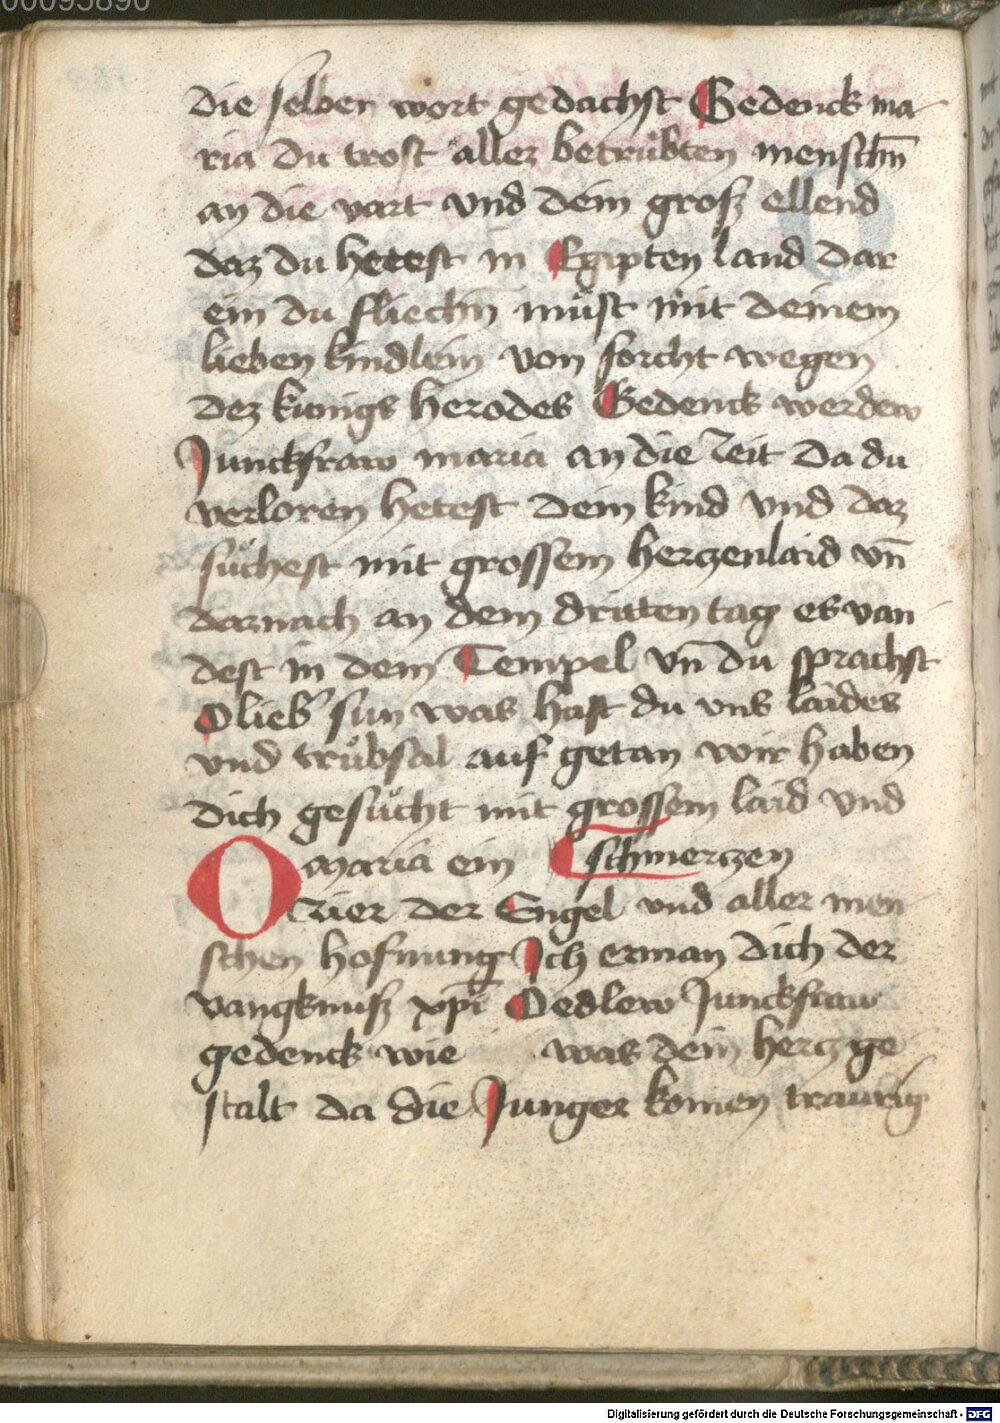 00095890
die selben wort gedachst Gedenck ma
ria du trost aller betrübten menschn̄
an die vart vnd dein grosz ellend
daz du hetest in Egipten land dar
ein du fliechn̄ müst mit deinem
lieben kindlein von forcht wegen
dez kunigs herodes Gedenck werdew
Junckfraw maria an die zeit da du
verloren hetest dein kind vnd daz
süchest mit grossem herczenlaid vn̄
darnach an dem dritten tag es van
dest in dem Tempel vn̄ du sprachst
O lieb' sun was hast du vns laides
vnd trübsal auf getan wir haben
dich gesücht mit grossem laid vnd
schmerczen
O maria ein
zier der Engel vnd aller men
schen hofnung Ich erman dich der
vangknusz xp̄i O edlew Junckfraw
gedenck wie was dein hercz ge
stalt da die Junger komen traurig
Digitalisierung gefördert durch die Deutsche Forschungsgemeinschaft - DFG